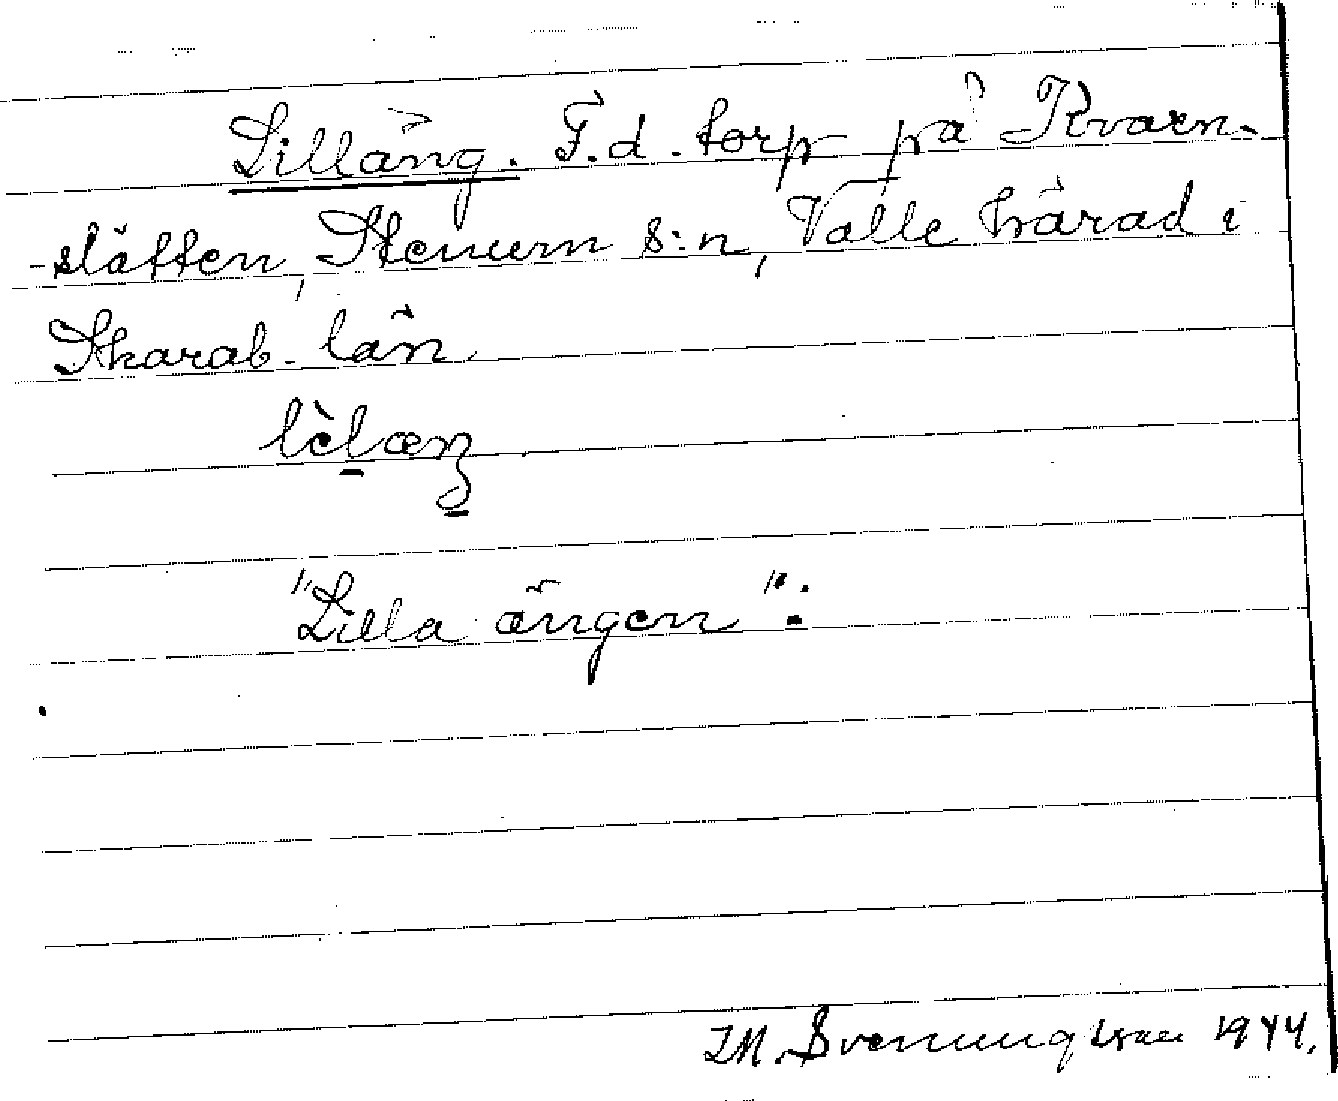 Lilläng. F.d. torp på Kvarn-
-slätten, Stenum s:n, Valle härad i
Skarab. län
lèlæŋ
"Lilla ängen":
I.M. Svenungsson 1944.